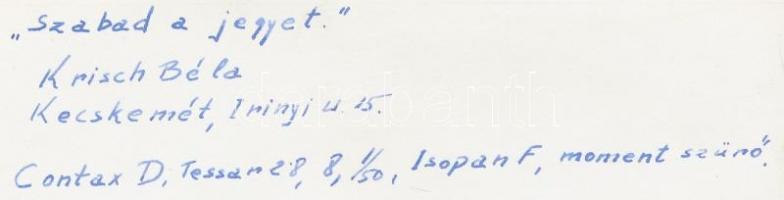 „Szabad a jegyet."
Krisch Béla
Kecskemét, Irinyi u. 15.
darabanth
Contax D, Tessar 2'8, 8, 1/50, Isopan F, moment szűrő.